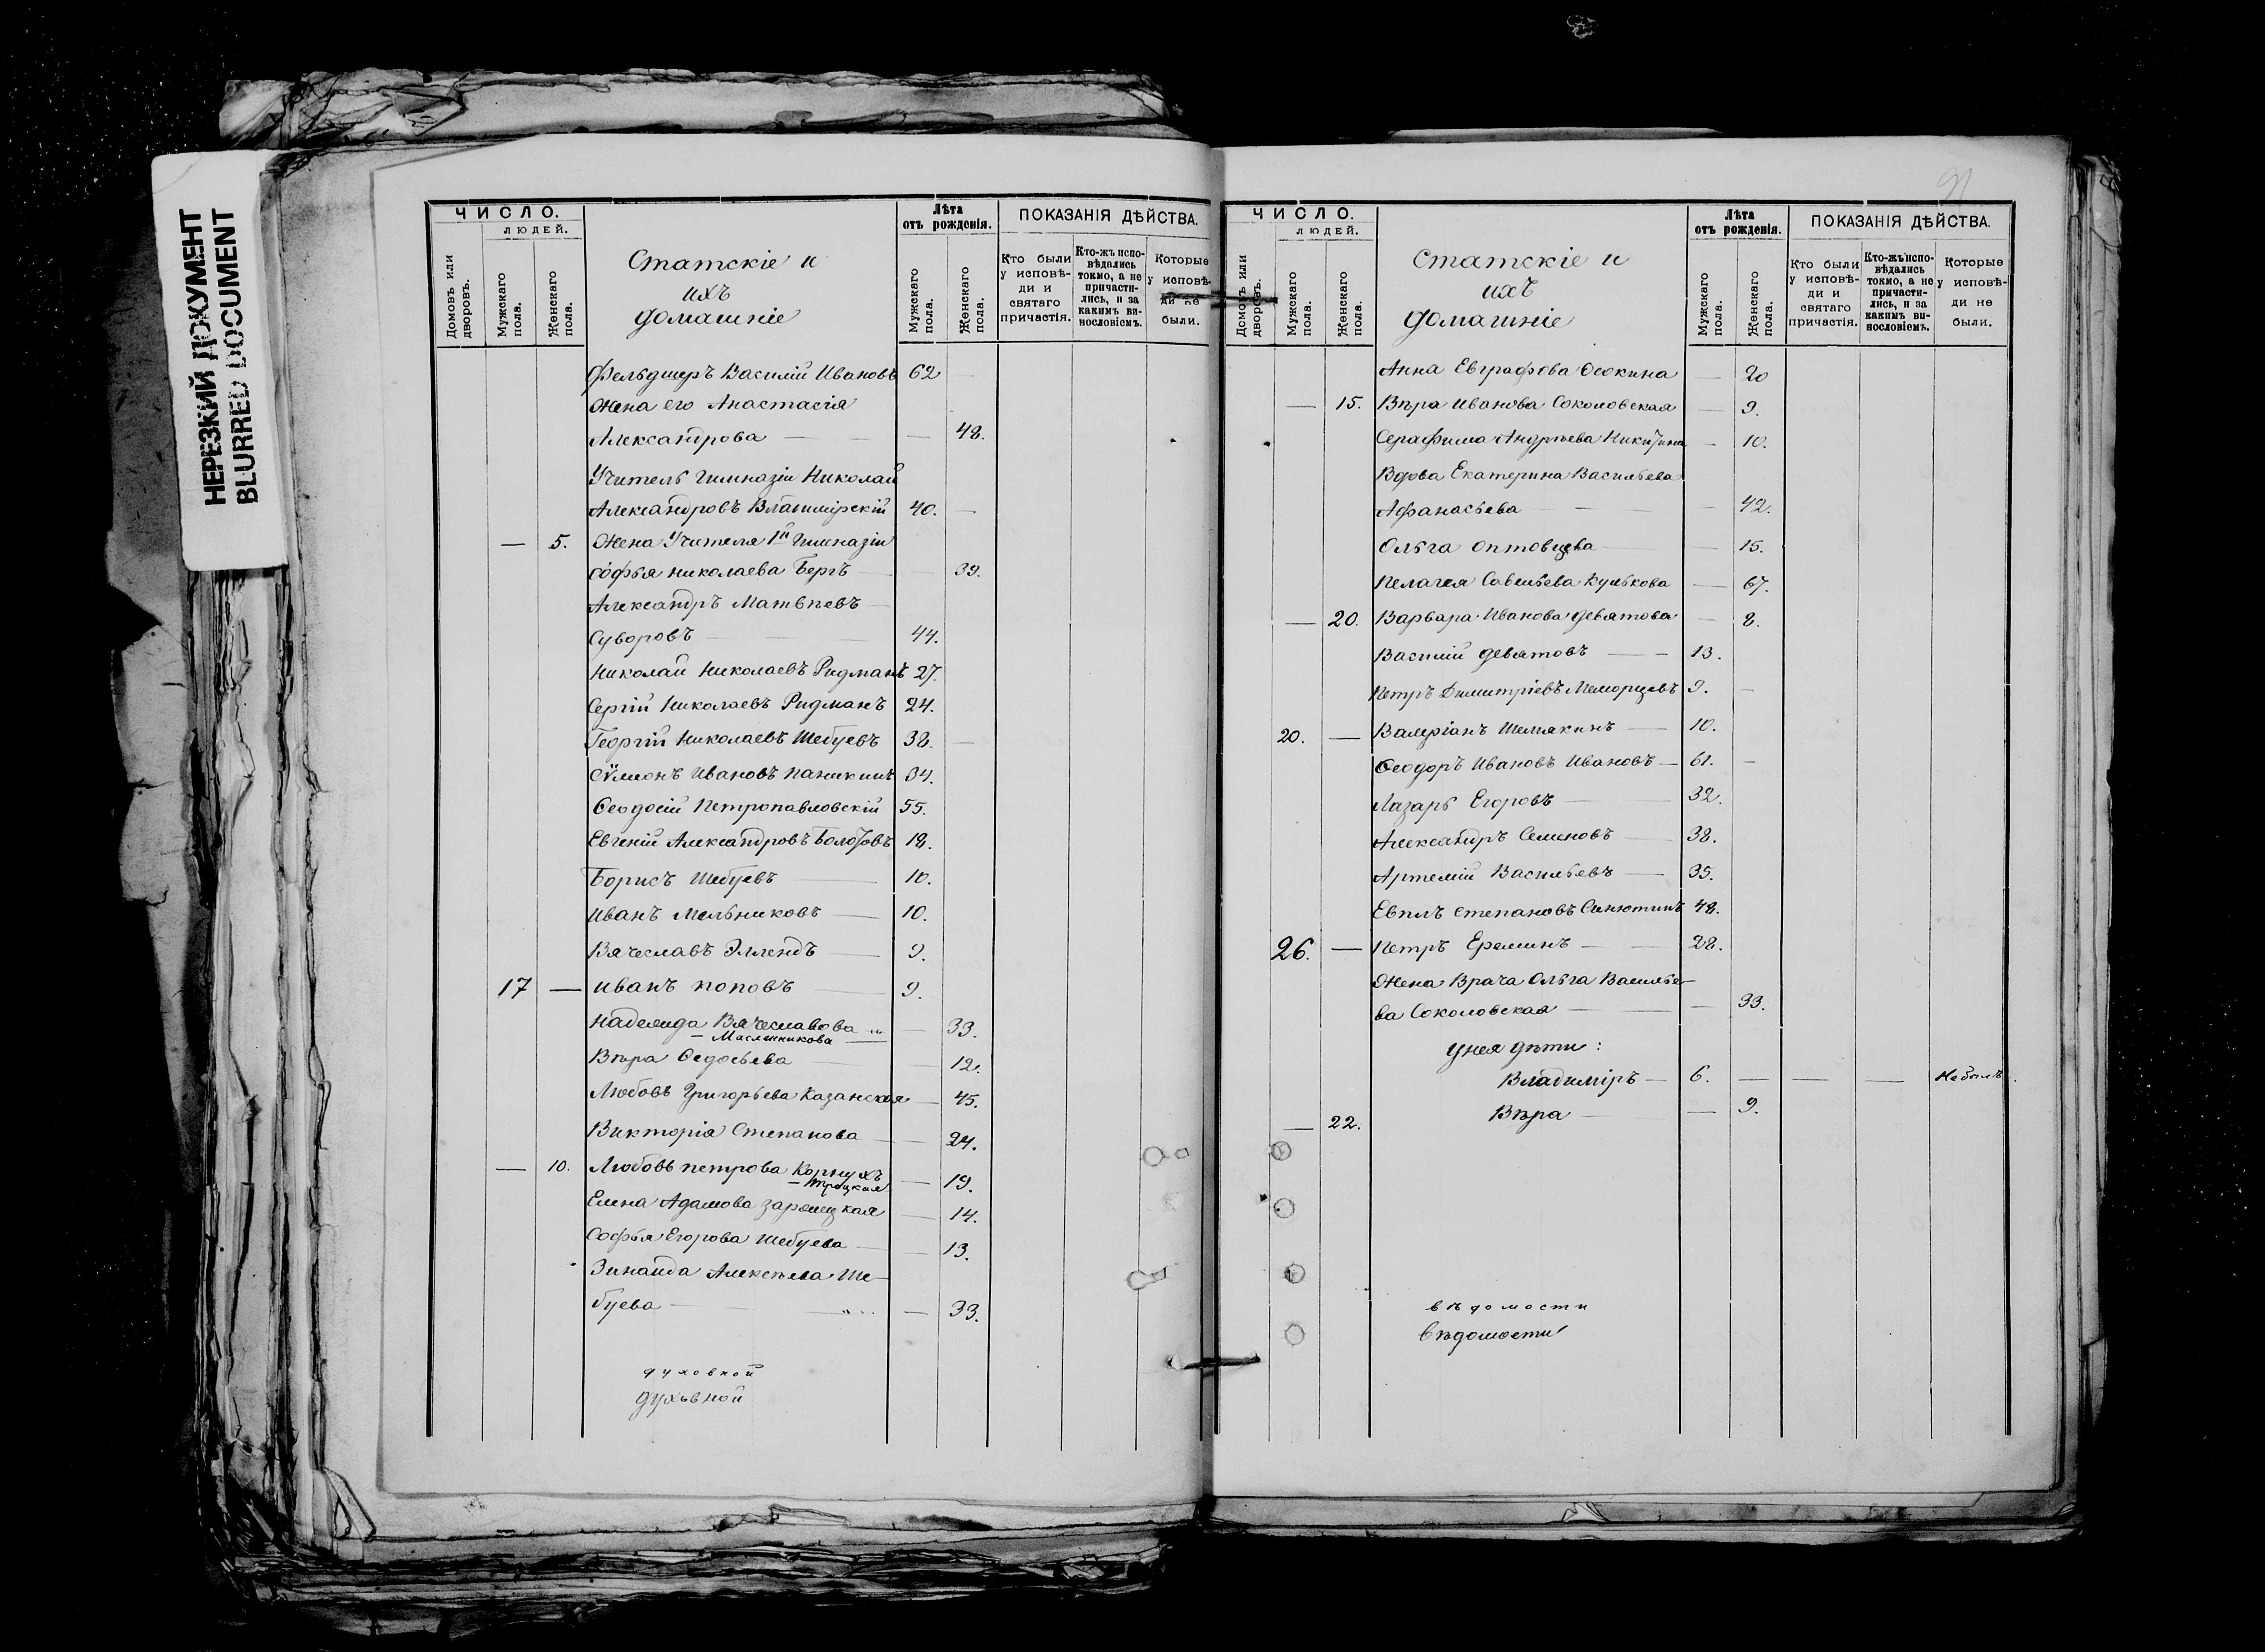 НЕРЕЗКИЙ ДОКУМЕНТ
BLURRED DOCUMENT
ЧИСЛО.
ЛЮДЕЙ.
Домовъ или дворовъ.
Мужскаго пола.
Женскаго пола.
Статскіе и
ихъ
домашніе
Лѣта
отъ рожденія.
Мужскаго пола.
Женскаго пола.
ПОКАЗАНІЯ ДѢЙСТВА.
Кто были у исповѣди и святаго причастія.
Кто-жъ исповѣдались токмо, а не причастились, и за какимъ винословіемъ.
Которые у исповѣди не были.
Фельдшеръ Василій Ивановъ 62 —
Жена его Анастасія
Александрова — — 48.
Учитель Гимназіи Николай
Александровъ Владимірскій 40. —
— 5. Жена Учителя 1й Гимназіи
Софья Николаева Бергъ — 39.
Александръ Матвѣевъ —
Суворовъ — 44.
Николай Николаевъ Ридманъ 27.
Сергій Николаевъ Ридманъ 24.
Георгій Николаевъ Шебуевъ 38. —
Сѵмеонъ Ивановъ Паникинъ 34.
Ѳеодосій Петропавловскій 55.
Евгеній Александровъ Болотовъ 18.
Борисъ Шебуевъ — 10.
Иванъ Мельниковъ — 10.
Вячеславъ Эллендъ — 9.
17 — Иванъ Поповъ — 9.
Надежда Вячеславова — 33.
— Масленникова —
Вѣра Ѳедосьева — 12.
Любовь Григорьева Казанская — 45.
Викторія Степанова — 24.
— 10. Любовь Петрова Корнухъ — 19.
— Троцкая
Елена Адамова Зарецкая — 14.
Софья Егорова Шебуева — 13.
Зинаида Алексѣева Ше-
буева — — 33.
духовной
духовной
91
ЧИСЛО.
ЛЮДЕЙ.
Домовъ или дворовъ.
Мужскаго пола.
Женскаго пола.
Статскіе и
ихъ
домашніе
Лѣта
отъ рожденія.
Мужскаго пола.
Женскаго пола.
ПОКАЗАНІЯ ДѢЙСТВА.
Кто были у исповѣди и святаго причастія.
Кто-жъ исповѣдались токмо, а не причастились, и за какимъ винословіемъ.
Которые у исповѣди не были.
Анна Евграфова Осокина — 20
— 15. Вѣра Иванова Соколовская — 9.
Серафима Андрѣева Никитина — 10.
Вдова Екатерина Васильева
Афанасьева — — 42.
Ольга Оптовцева — 15.
Пелагея Савельева Кулькова — 67.
— 20. Варвара Иванова Девятова — 8.
Василій Девятовъ — 13.
Петръ Димитріевъ 9. —
20. — Валеріанъ Шемякинъ — 10.
Ѳеодоръ Ивановъ Ивановъ — 61. —
Лазарь Егоровъ — 32.
Александръ Семеновъ — 38.
Артемій Васильевъ — 35.
Евплъ Степановъ Синютинъ 48.
26. — Петръ Ереминъ — 28.
Жена Врача Ольга Василье-
ва Соколовская — — 33.
У нея дѣти:
Владиміръ — 6. — — — Не былъ.
— 22. Вѣра — — 9.
вѣдомости
вѣдомости